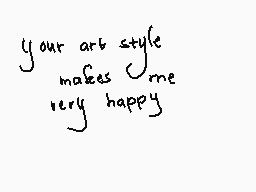 your art style
makes me
very happy